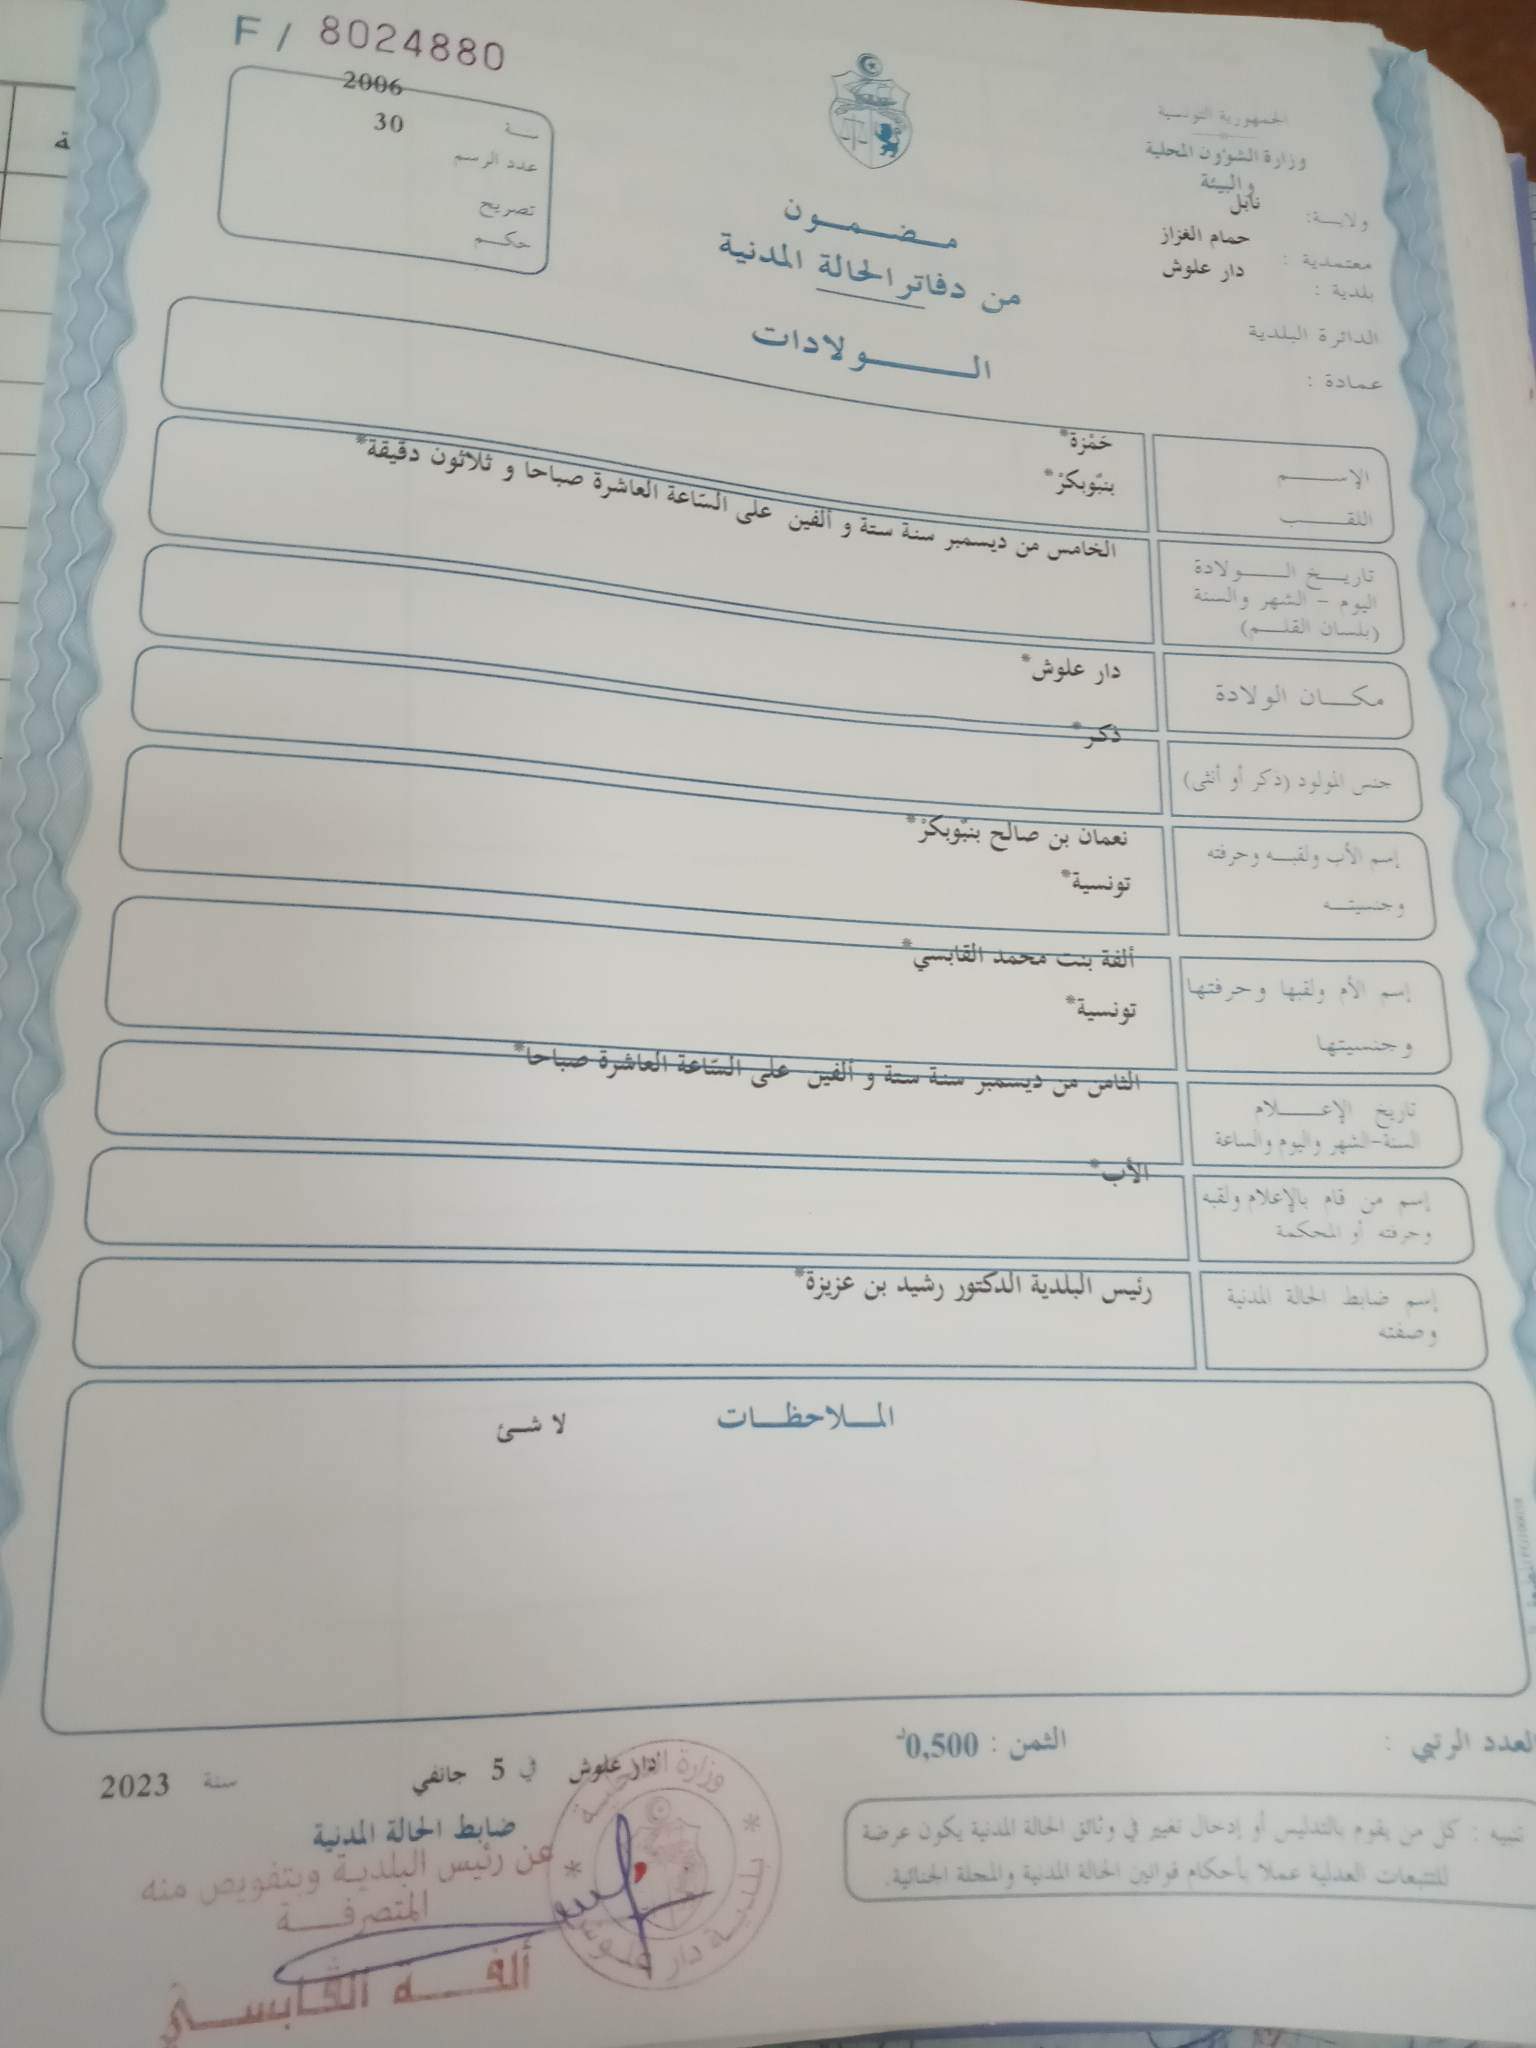 F / 8024880
الجمهورية التونسية
وزارة الشؤون المحلية
والبيئة
ولاية: نابل
معتمدية : حمام الغزاز
بلدية : دار علوش
الدائرة البلدية
عمادة :
سنة 2006
عدد الرسم 30
تصريح
حكم
مضمون
من دفاتر الحالة المدنية
الولادات
الإسم حَمْزة*
اللقب بنبّوبكرْ*
تاريخ الولادة
اليوم - الشهر والسنة
(بلسان القلم)
الخامس من ديسمبر سنة ستة و ألفين على السّاعة العاشرة صباحا و ثلاثون دقيقة*
مكان الولادة دار علوش*
جنس المولود (ذكر أو أنثى) ذكر*
إسم الأب ولقبه وحرفته نعمان بن صالح بنبّوبكرْ*
وجنسيته تونسية*
إسم الأم ولقبها وحرفتها ألفة بنت محمد القابسي*
وجنسيتها تونسية*
تاريخ الإعلام
السنة-الشهر واليوم والساعة
الثامن من ديسمبر سنة ستة و ألفين على السّاعة العاشرة صباحا*
إسم من قام بالإعلام ولقبه
وحرفته أو المحكمة
الأب*
إسم ضابط الحالة المدنية
وصفته
رئيس البلدية الدكتور رشيد بن عزيزة*
الملاحظات لا شئ
العدد الرتبي :
الثمن : 0,500د
دار علوش في 5 جانفي سنة 2023
ضابط الحالة المدنية
عن رئيس البلدية وبتفويض منه
المتصرفة
ألفة القابسي
بلدية دار علوش
تنبيه : كل من يقوم بالتدليس أو إدخال تغيير في وثائق الحالة المدنية يكون عرضة
للتتبعات العدلية عملا بأحكام قوانين الحالة المدنية والمجلة الجنائية.